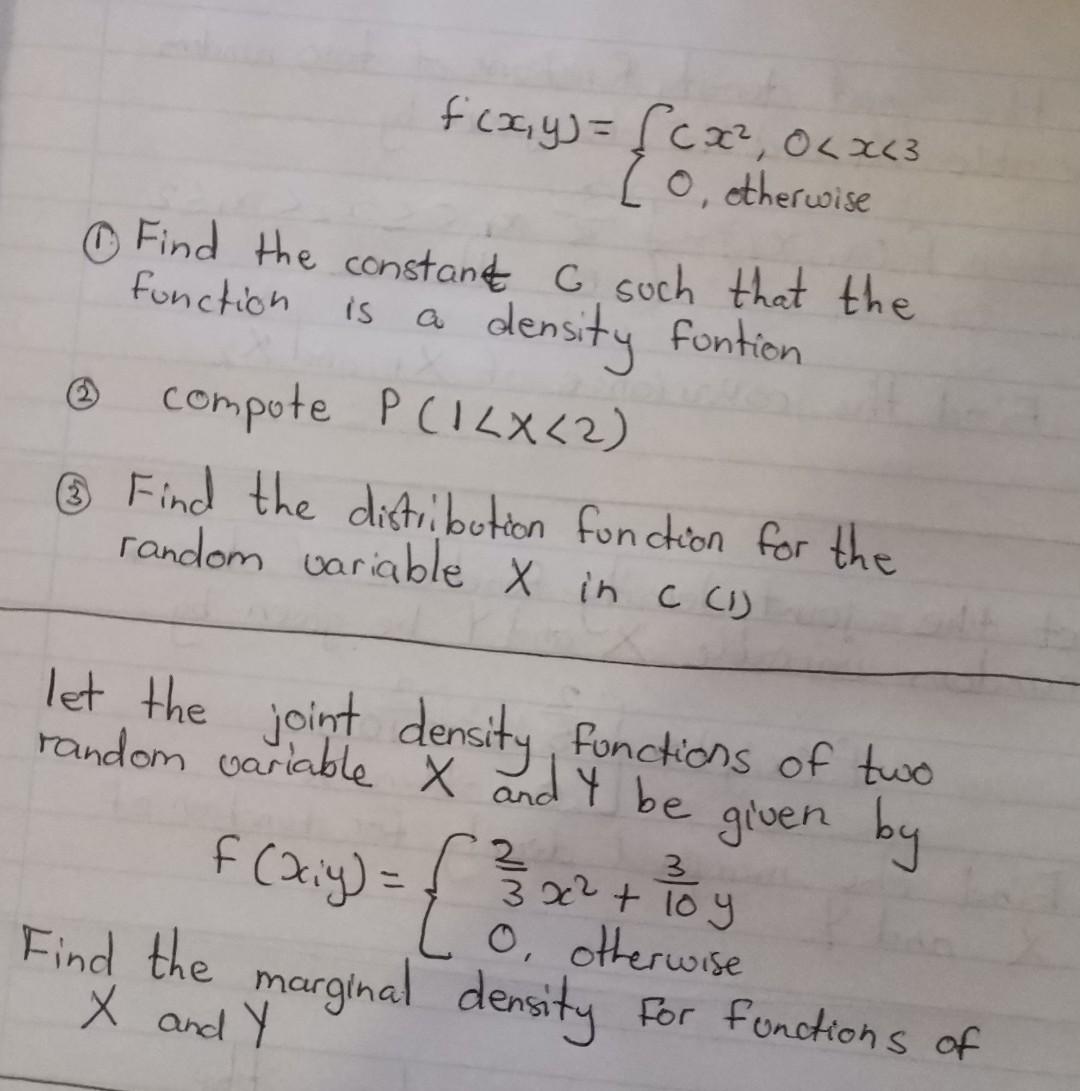 f(x,y) = { Cx², 0<x<3
0, otherwise
① Find the constant C such that the
function is a density fontion
② compute P(1<X<2)
③ Find the distribution function for the
random variable X in c (1)
let the joint density functions of two
random variable X and Y be given by
f(x;y) = { 2/3 x² + 3/10 y
0, otherwise
Find the marginal density for functions of
X and Y